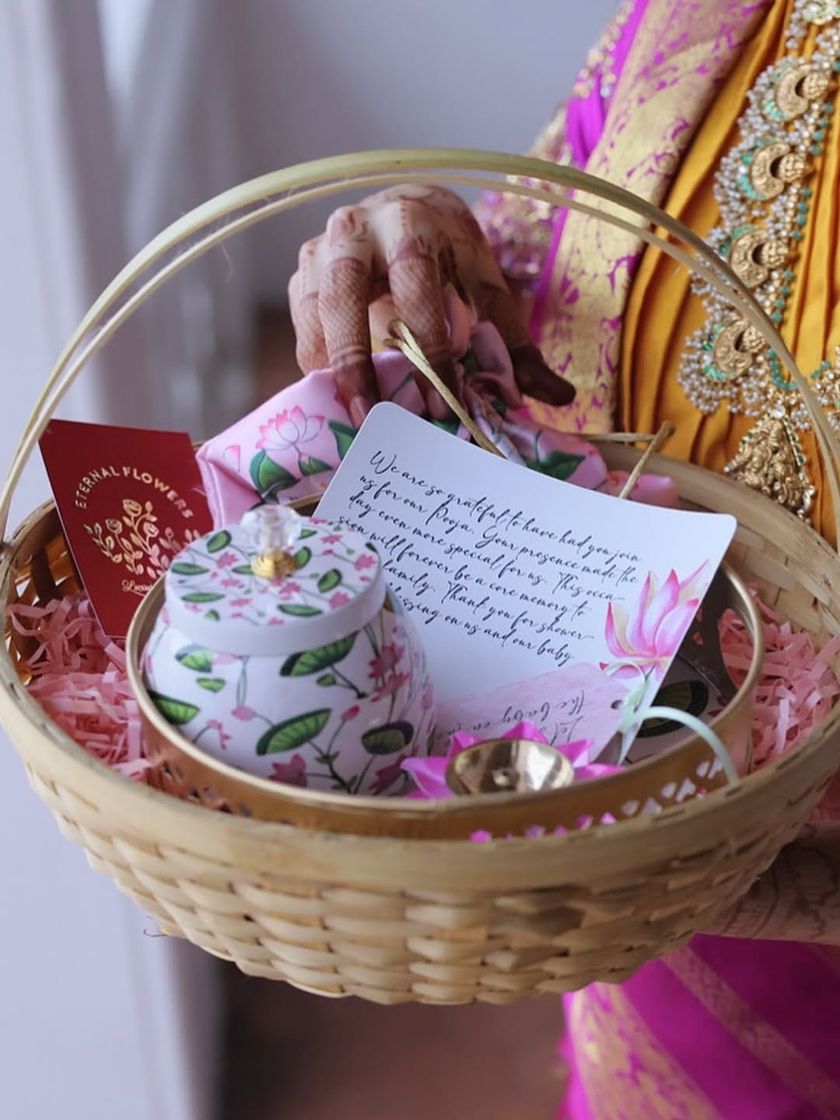 ETERNAL FLOWERS
We are so grateful to have had you join
us for our Pooja. Your presence made the
day even more special for us. This occa-
sion will forever be a core memory to
family. Thank you for shower-
blessing on us and our baby
the baby